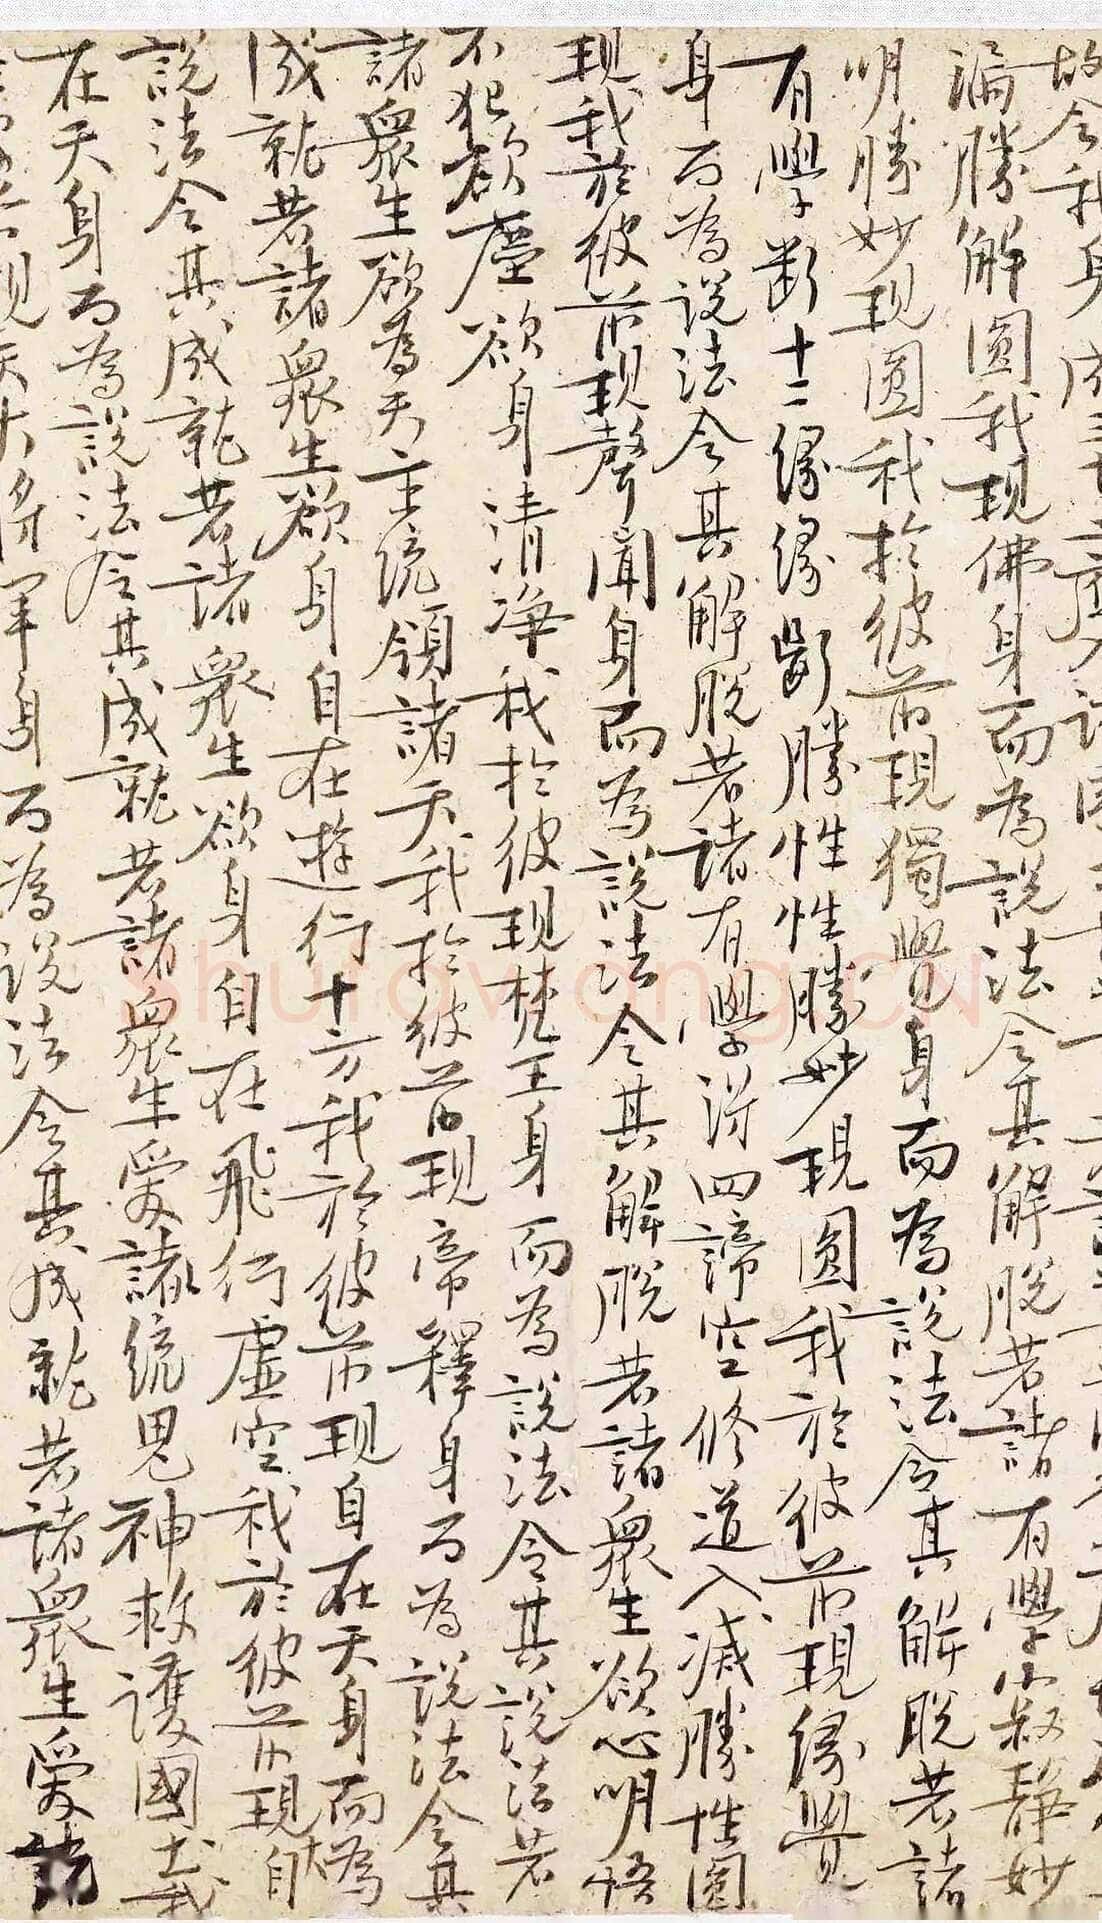 故令我身成三十二應入諸國土
漏勝解圓我現佛身而為說法令其解脫若諸有學寂靜妙
明勝妙現圓我於彼前現獨覺身而為說法令其解脫若諸
有學斷十二緣緣斷勝性性勝妙現圓我於彼前現緣覺
身而為說法令其解脫若諸有學得四諦空修道入滅勝性圓
現我於彼前現聲聞身而為說法令其解脫若諸眾生欲心明悟
不犯欲塵欲身清淨我於彼現梵王身而為說法令其說法若
諸眾生欲為天主統領諸天我於彼前現帝釋身而為說法令其
成就若諸眾生欲身自在遊行十方我於彼前現自在天身而為
說法令其成就若諸眾生欲身自在飛行虛空我於彼前現大自
在天身而為說法令其成就若諸眾生愛諸統鬼神救護國土我
現天大將軍身而為說法令其成就若諸眾生愛統
shufawang.CN